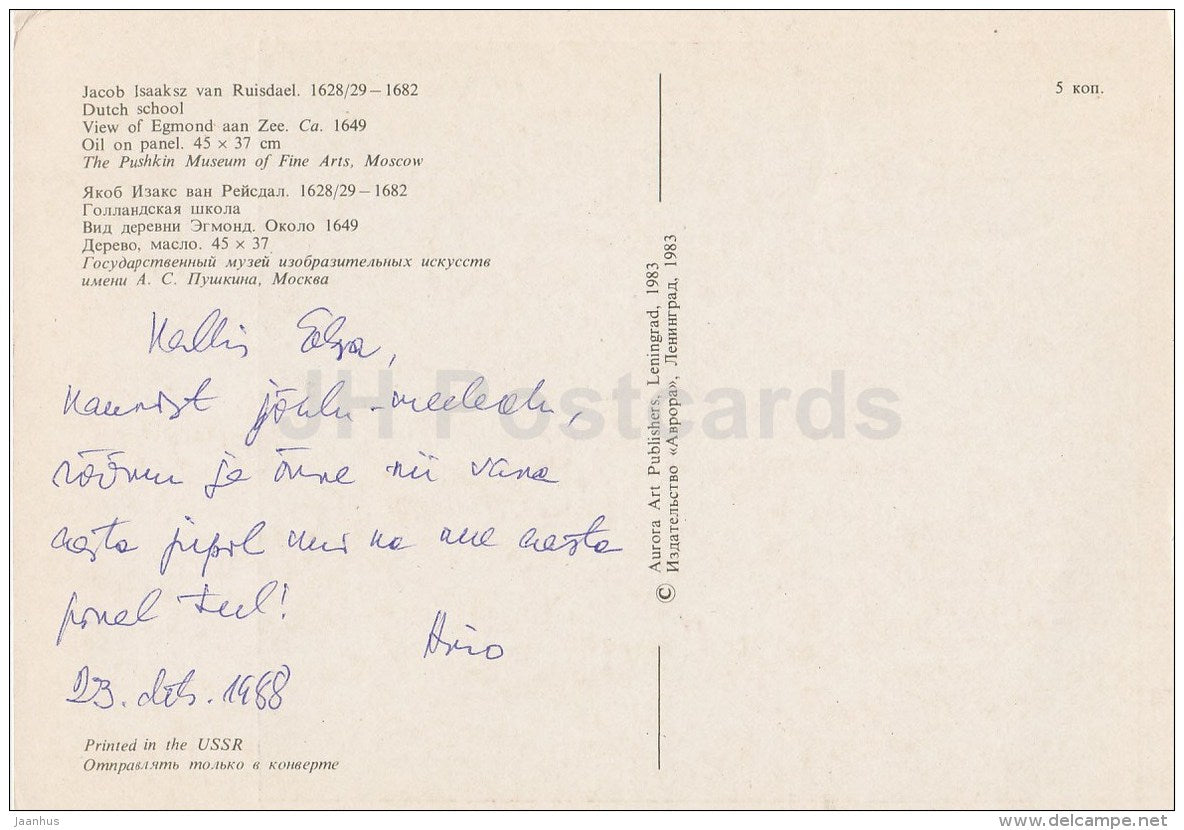 Jacob Isaaksz van Ruisdael. 1628/29 – 1682
Dutch school
View of Egmond aan Zee. Ca. 1649
Oil on panel. 45 × 37 cm
The Pushkin Museum of Fine Arts, Moscow
Якоб Изакс ван Рейсдал. 1628/29 – 1682
Голландская школа
Вид деревни Эгмонд. Около 1649
Дерево, масло. 45 × 37
Государственный музей изобразительных искусств
имени А. С. Пушкина, Москва
Kallis
kaunist jõulu-
rõõmu ja õnne nii vana
aasta kui ka uue aasta
puhul!
23. dets. 1988
Printed in the USSR
Отправлять только в конверте
© Aurora Art Publishers, Leningrad, 1983
Издательство «Аврора», Ленинград, 1983
5 коп.
JH Postcards
Jaanhus
delcampe.net